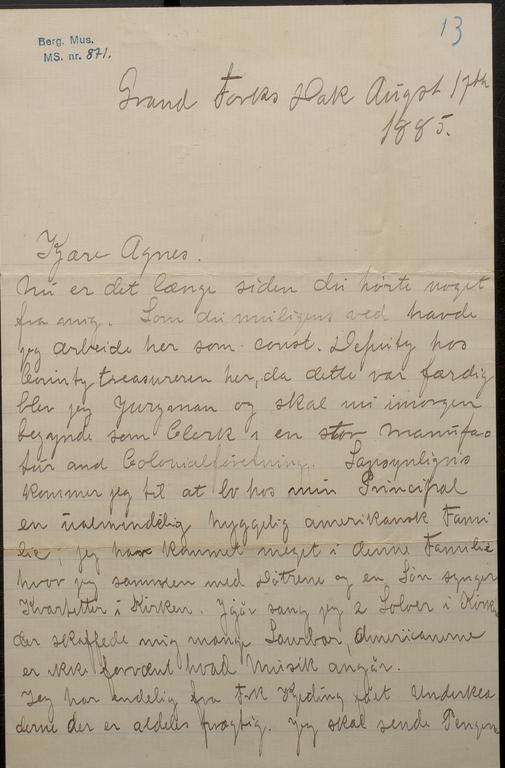 13
Berg. Mus.
MS. nr. 871.
Grand Forks Dak Augst 17th
1885.
Kjære Agnes!
Nu er det længe siden du hørte noget
fra mig. Som du muligens ved havde
jeg arbeide her som const. Deputy hos
Countytreasureren her, da dette var færdig
blev jeg Juryman og skal nu imorgen
begynde som Clerk i en stor Manufac
tur and Colonialforetning. Sansynligvis
kommer jeg til at bo hos min Principal
en ualmindelig hyggelig amerikansk Fami
lie; jeg har kommet meget i denne Familie
hvor jeg sammen med Døtrene og en Søn synger
Kvartetter i Kirken. Igår sang jeg 2 Soloer i Kirken
der skaffede mig mange Laurbær, Americanerne
er ikke forvænt hvad Musik angår.
Jeg har endelig fra Frk fået Underklæ
derne der er aldeles prægtig. Jeg skal sende Pengene